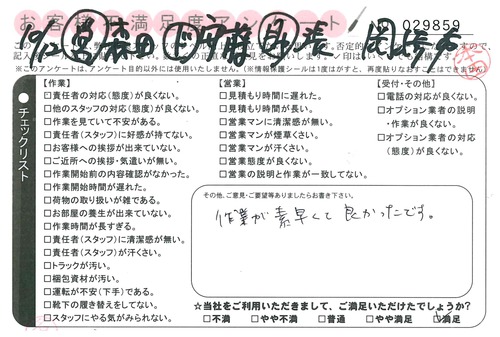 お客様満足度アンケート
029859
10/12 営 森田 下 安藤 長 岡崎市
※このアンケートは、アンケート目的以外には使用いたしません。(※情報保護シールは1度はがすと、再度貼りなおすことはできません)
チェックリスト
【作業】
□責任者の対応(態度)が良くない。
□他のスタッフの対応(態度)が良くない。
□作業を見ていて不安がある。
□責任者(スタッフ)に好感が持てない。
□お客様への挨拶が出来ていない。
□ご近所への挨拶・気遣いが無い。
□作業開始前の内容確認がなかった。
□作業開始時間が遅れた。
□荷物の取り扱いが雑である。
□お部屋の養生が出来ていない。
□作業時間が長すぎる。
□責任者(スタッフ)に清潔感が無い。
□責任者(スタッフ)が汗くさい。
□トラックが汚い。
□梱包資材が汚い。
□運転が不安(下手)である。
□靴下の履き替えをしてない。
□スタッフにやる気がみられない。
【営業】
□見積もり時間に遅れた。
□見積もり時間が長い。
□営業マンに清潔感が無い。
□営業マンが煙草くさい。
□営業マンが汗くさい。
□営業態度が良くない。
□営業の説明と作業が一致してない。
【受付・その他】
□電話の対応が良くない。
□オプション業者の説明
・作業が良くない。
□オプション業者の対応
(態度)が良くない。
その他、ご意見・ご要望等ありましたらお書き下さい。
作業が素早くて良かったです。
☆当社をご利用いただきまして、ご満足いただけたでしょうか?
□不満 □やや不満 □普通 □やや満足 ☑満足